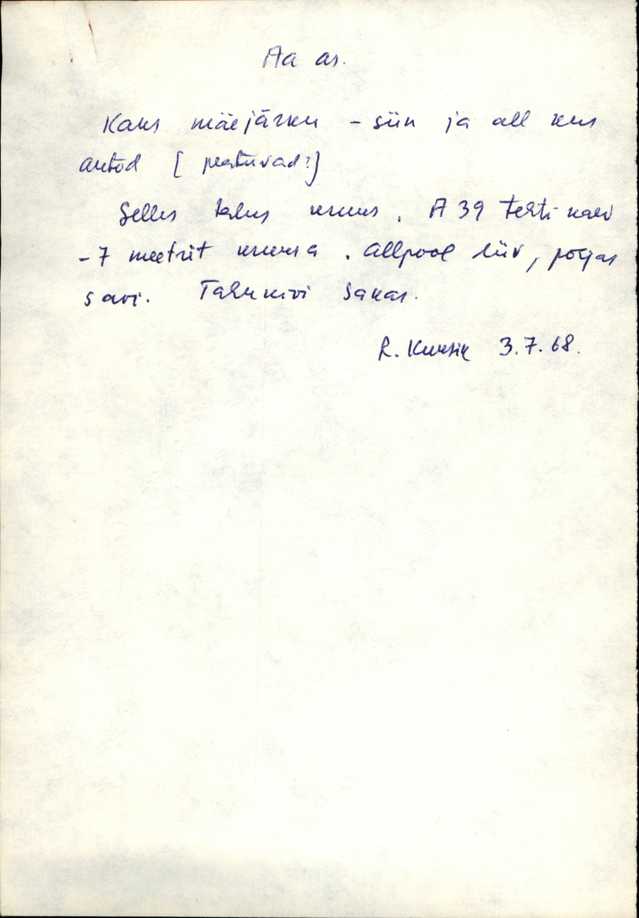 Aa as.
Kaks mäejärku – siin ja all kus
autod [peatuvad?]
Selles talus kruus. A 39 tehti kaev
– 7 meetrit kruusa. Allpool liiv, põhjas
savi. Tahukivi Sakas.
R. 3.7.68.